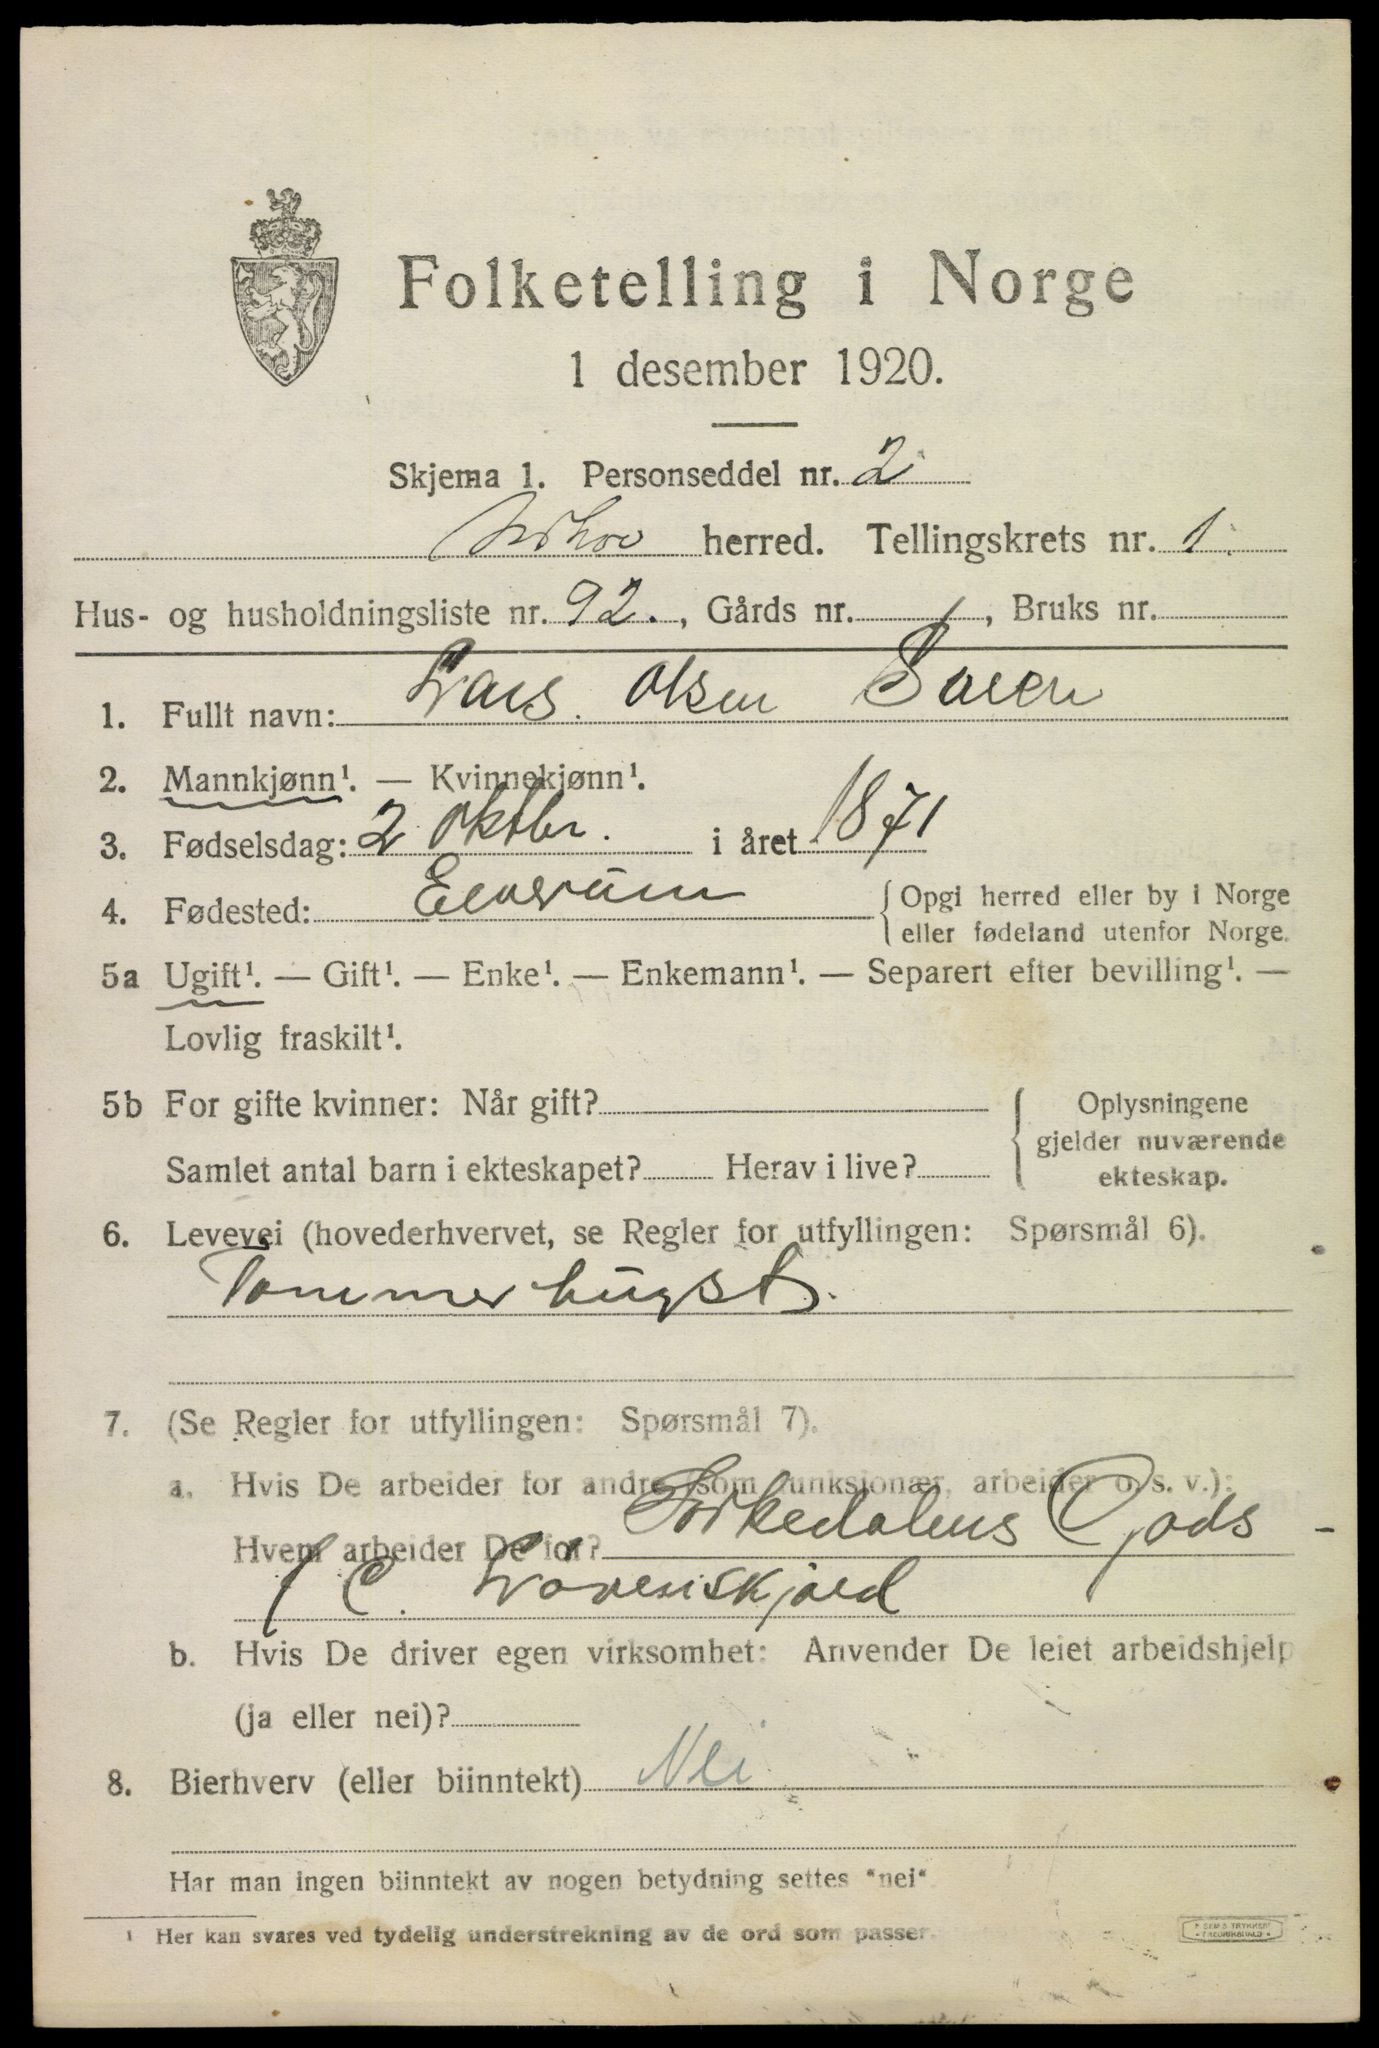 Folketelling i Norge
1 desember 1920.
Skjema 1. Personseddel nr. 2
herred. Tellingskrets nr. 1.
Hus- og husholdningsliste nr. 92., Gårds nr. /, Bruks nr.
1. Fullt navn: Lars Olsen
2. Mannkjønn¹. — Kvinnekjønn¹.
3. Fødselsdag: 2 Oktbr. i året 1871
4. Fødested: Elverum { Opgi herred eller by i Norge
eller fødeland utenfor Norge.
5a Ugift¹. — Gift¹. — Enke¹. — Enkemann¹. — Separert efter bevilling¹. —
Lovlig fraskilt¹.
5b For gifte kvinner: Når gift? { Oplysningene
gjelder nuværende
Samlet antal barn i ekteskapet? Herav i live? ekteskap.
6. Levevei (hovederhvervet, se Regler for utfyllingen: Spørsmål 6).
Tømmerhugst.
7. (Se Regler for utfyllingen: Spørsmål 7).
a. Hvis De arbeider for andre (som funksjonær, arbeider o. s. v.):
Hvem arbeider De for? Sørkedalens Gods -
C. Løvenskjold
b. Hvis De driver egen virksomhet: Anvender De leiet arbeidshjelp
(ja eller nei)?
8. Bierhverv (eller biinntekt) Nei
Har man ingen biinntekt av nogen betydning settes "nei"
¹ Her kan svares ved tydelig understrekning av de ord som passer.